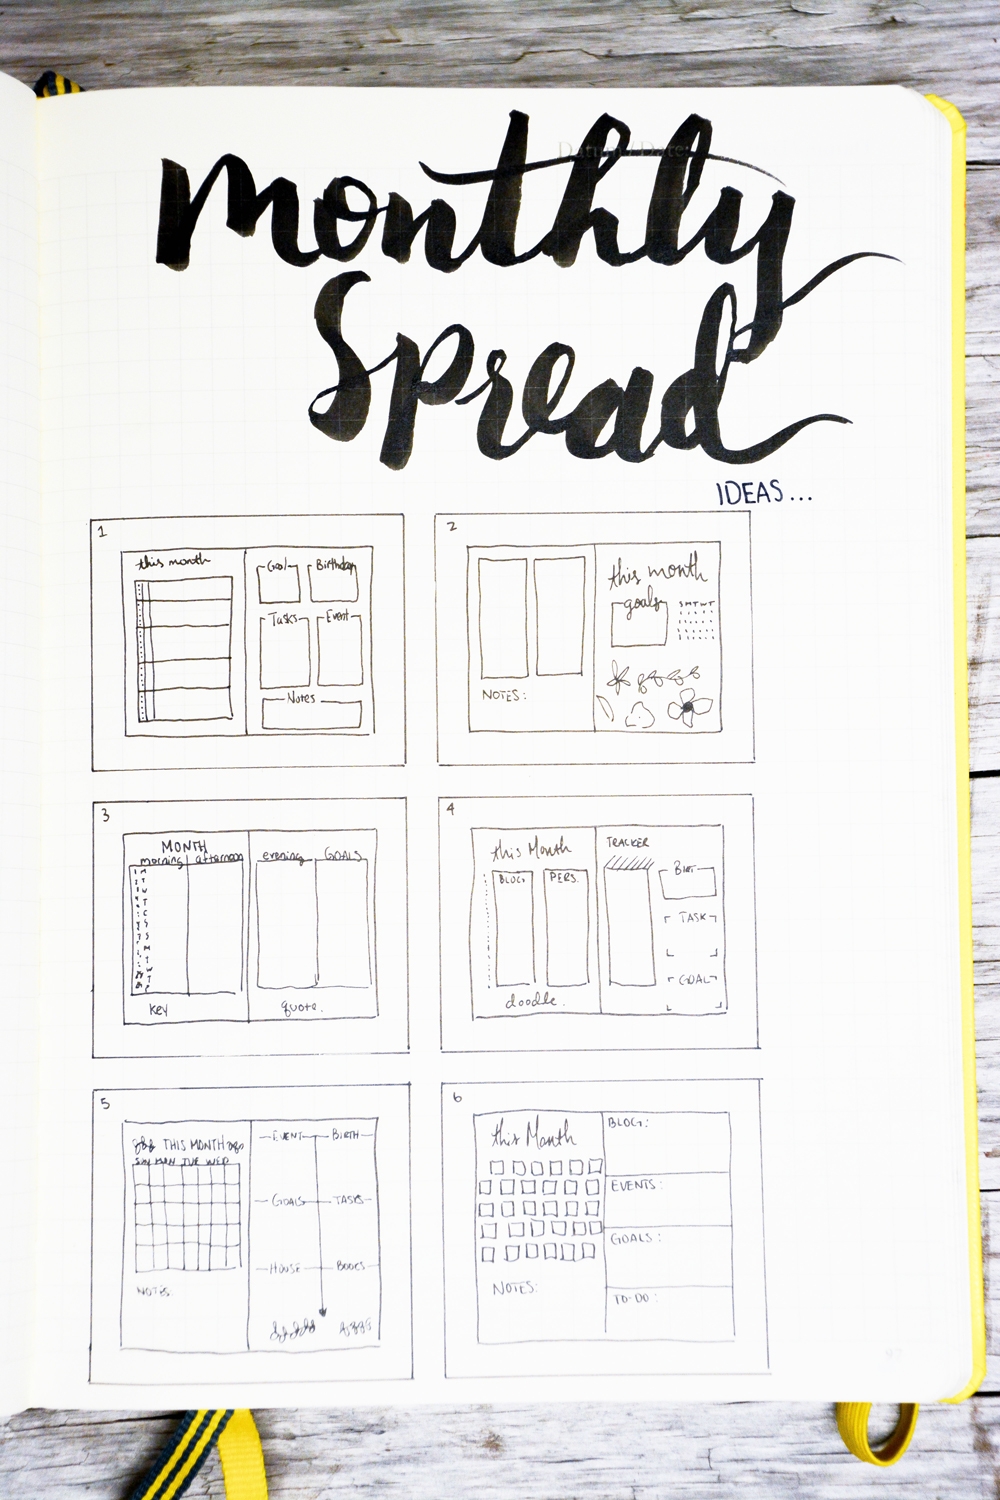 Datum / Date:
monthly
Spread
IDEAS...
1
this month
Goal
Birthday
Tasks
Event
Notes
2
this month
goals
S M T W T
NOTES:
3
MONTH
morning afternoon
evening GOALS
key
quote.
4
this Month
BLOG
PERS.
TRACKER
BIRT
TASK
GOAL
doodle.
5
THIS MONTH
SUN MON TUE WED
NOTES:
EVENT
BIRTH
GOALS
TASKS
HOUSE
BOOKS
6
this Month
NOTES:
BLOG:
EVENTS:
GOALS:
TO-DO: